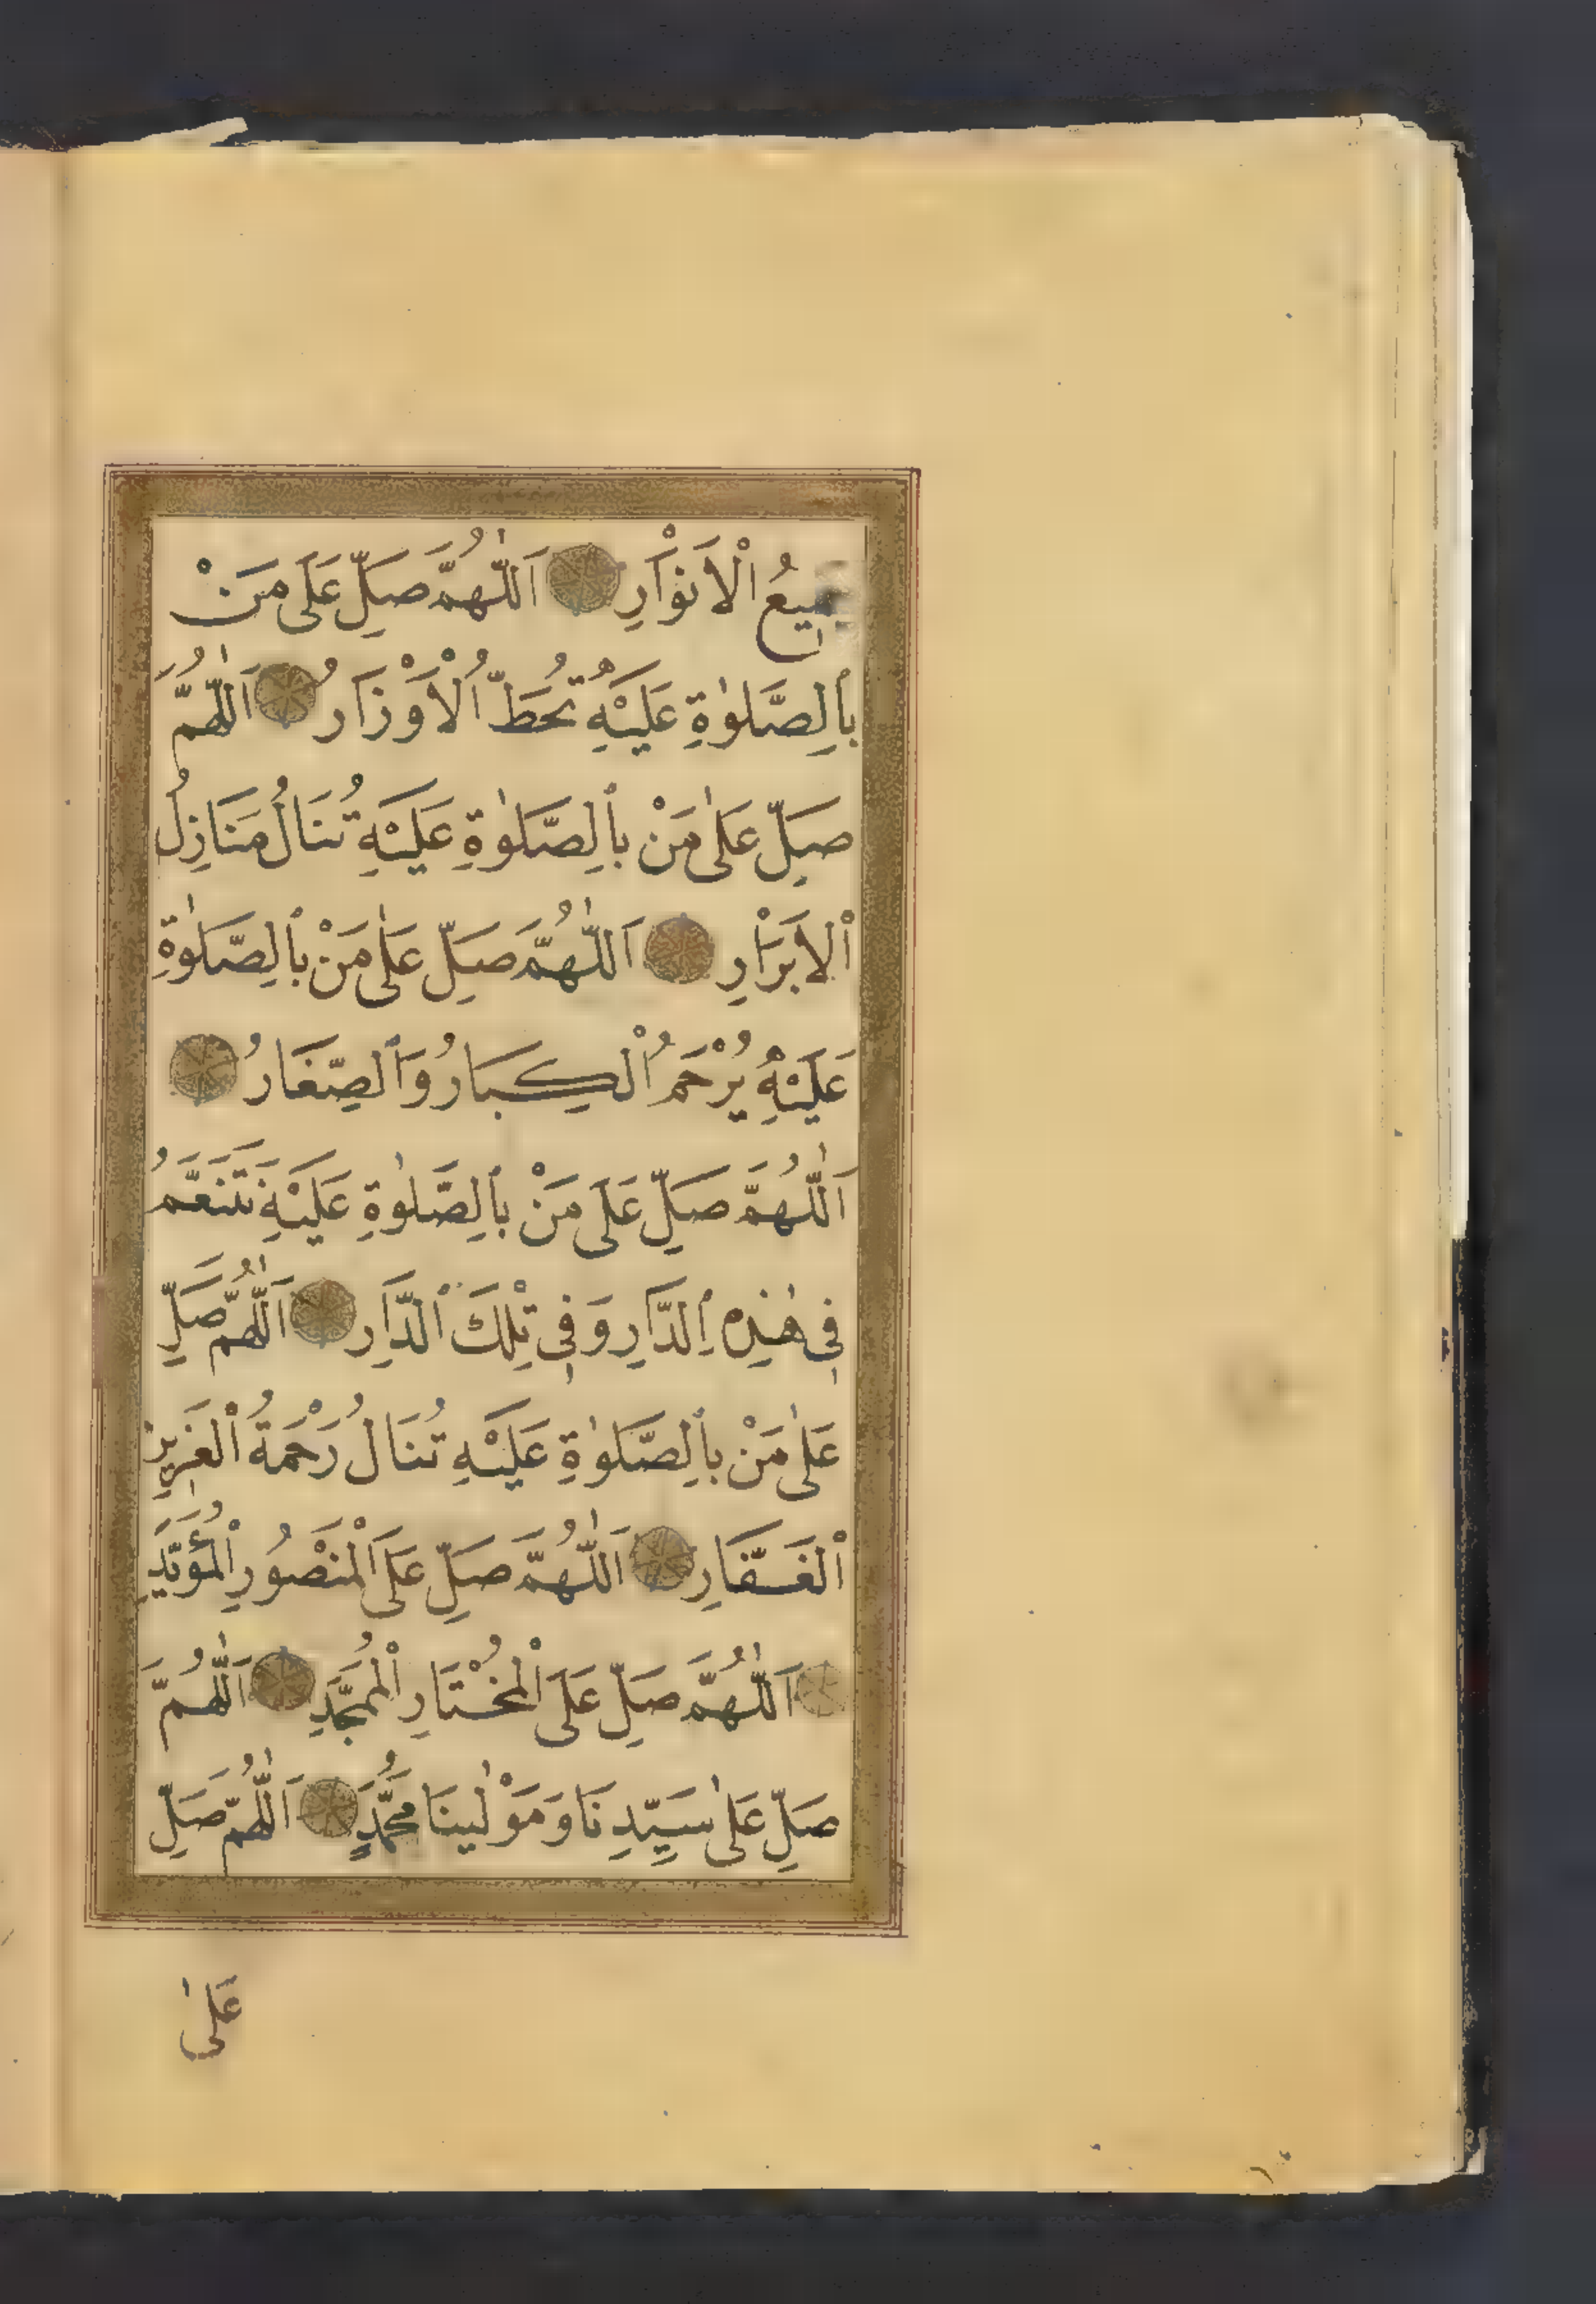 جَمِيعُ الْأَنْوَارِ اَللّٰهُمَّ صَلِّ عَلَى مَنْ
بِالصَّلٰوةِ عَلَيْهِ تُحَطُّ الْأَوْزَارُ اَللّٰهُمَّ
صَلِّ عَلٰى مَنْ بِالصَّلٰوةِ عَلَيْهِ تُنَالُ مَنَازِلُ
الْأَبْرَارِ اَللّٰهُمَّ صَلِّ عَلٰى مَنْ بِالصَّلٰوةِ
عَلَيْهِ يُرْحَمُ الْكِبَارُ وَالصِّغَارُ
اَللّٰهُمَّ صَلِّ عَلَى مَنْ بِالصَّلٰوةِ عَلَيْهِ نَتَنَعَّمُ
فِي هٰذِهِ الدَّارِ وَفِي تِلْكَ الدَّارِ اَللّٰهُمَّ صَلِّ
عَلٰى مَنْ بِالصَّلٰوةِ عَلَيْهِ تُنَالُ رَحْمَةُ الْعَزِيزِ
الْغَفَّارِ اَللّٰهُمَّ صَلِّ عَلَى الْمَنْصُورِ الْمُؤَيَّدِ
اَللّٰهُمَّ صَلِّ عَلَى الْمُخْتَارِ الْمُمَجَّدِ اَللّٰهُمَّ
صَلِّ عَلٰى سَيِّدِنَا وَمَوْلٰينَا مُحَمَّدٍ اَللّٰهُمَّ صَلِّ
عَلٰى